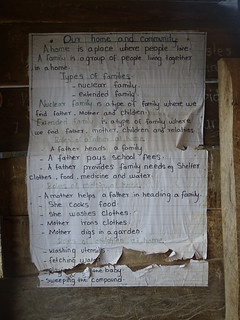 Our home and community
A home is a place where people live.
A family is a group of people living together
in a home.
Types of families
- nuclear family
- extended family
Nuclear family is a type of family where we
find father, Mother and Children.
Extended family is a type of family where
we find father, mother, children and relatives
- A father heads a family
- A father pays school fees.
- A father provides family needs eg Shelter
clothes, food, medicine and water
- A mother helps a father in heading a family.
- She cooks food.
- She washes clothes.
- Mother irons clothes
- Mother digs in a garden
- washing utensils
- fetching water
baby
- Sweeping the compound.